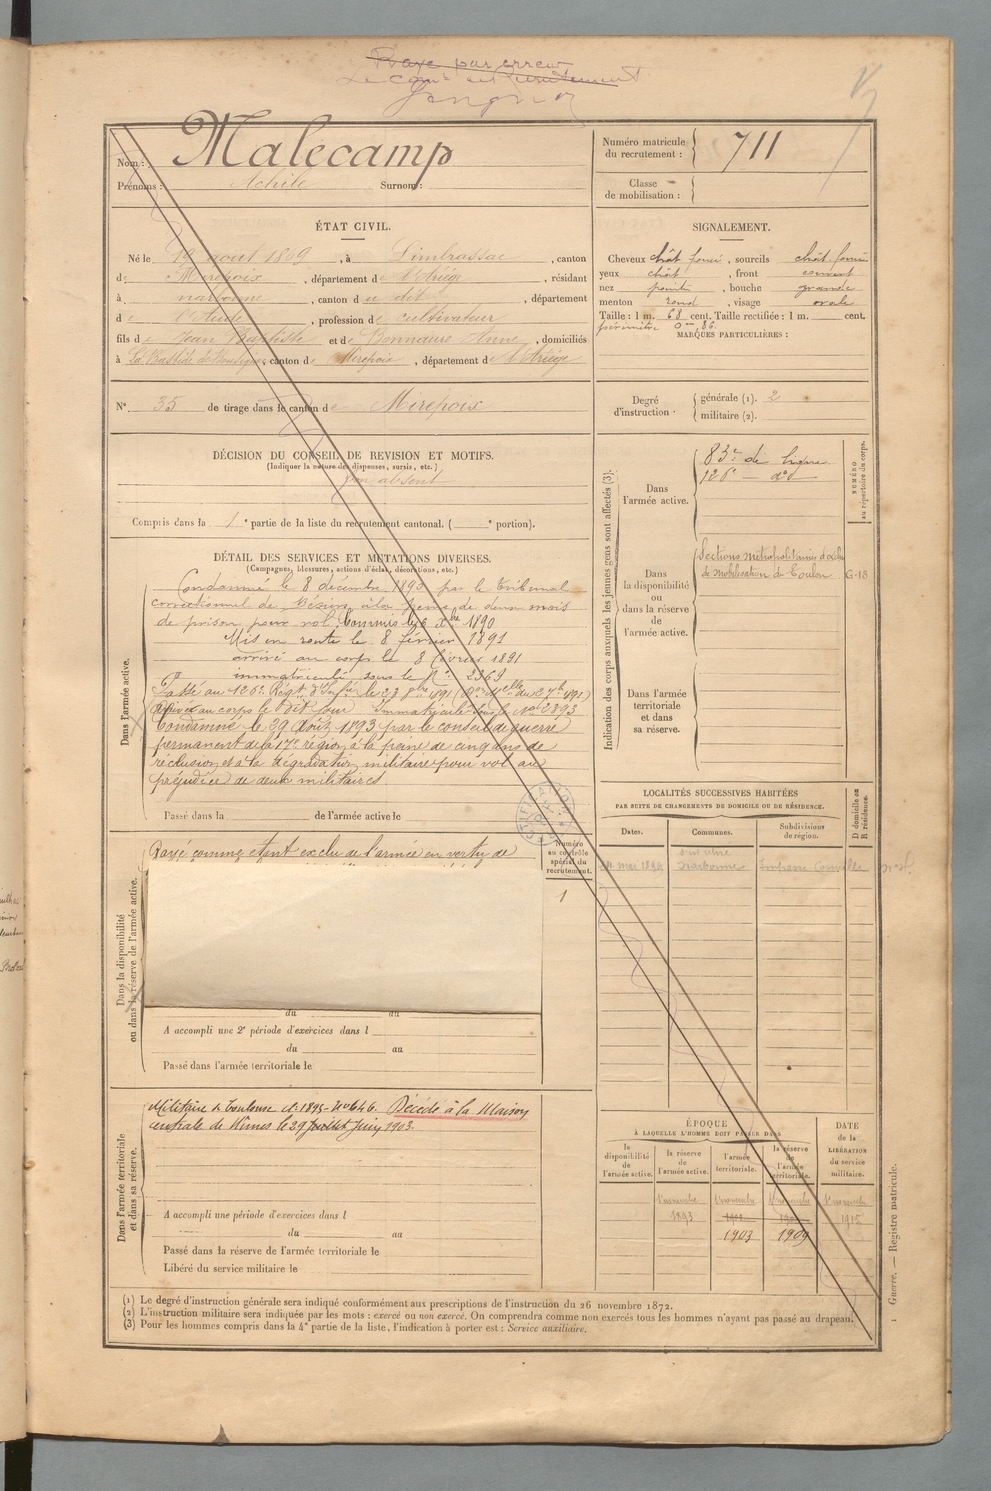 Rayé par erreur
Le Com<sup>t</sup> de Recrutement
Nom : Malecamp
Prénoms : Achile Surnom :
Numéro matricule du recrutement : 711
Classe de mobilisation :
ÉTAT CIVIL.
Né le 19 août 1869, à Limbrassac, canton
de Mirepoix, département de l'Ariège, résidant
à Narbonne, canton du dit, département
de l'Aude, profession de cultivateur
fils de Jean Baptiste et de Bonnaure Anne, domiciliés
à La Bastide de Bousignac, canton de Mirepoix, département de l'Ariège
N° 35 de tirage dans le canton de Mirepoix
SIGNALEMENT.
Cheveux chât foncé, sourcils chât. foncé
yeux chât, front couvert
nez pointu, bouche grande
menton rond, visage ovale
Taille : 1 m. 68 cent. Taille rectifiée : 1 m. cent.
périmètre 0m 86.
MARQUES PARTICULIÈRES :
Degré d'instruction : générale (1). 2
militaire (2).
DÉCISION DU CONSEIL DE REVISION ET MOTIFS.
(Indiquer la nature des dispenses, sursis, etc.)
Bon absent
Compris dans la 1e partie de la liste du recrutement cantonal. ( e portion).
DÉTAIL DES SERVICES ET MUTATIONS DIVERSES.
(Campagnes, blessures, actions d'éclat, décorations, etc.)
Dans l'armée active.
Condamné le 8 décembre 1890 par le tribunal
correctionnel de Béziers à la peine de deux mois
de prison pour vol. Commis le 6 Xbre 1890
Mis en route le 8 février 1891
arrivé au corps le 8 février 1891
immatriculé sous le N° 2363
Passé au 126e Régt d'Infie le 23
Arrivé au corps le dit jour Immatriculé sous le No 2893
Condamné le 29 Août 1893 par le conseil de guerre
permanent de la 17e région, à la peine de cinq ans de
réclusion et à la dégradation militaire pour vol au
préjudice de deux militaires.
Passé dans la de l'armée active le
Dans la disponibilité ou dans la réserve de l'armée active.
Rayé comme étant exclu de l'armée en vertu de
Numéro au contrôle spécial du recrutement.
1
du au
A accompli une 2e période d'exercices dans l
du au
Passé dans l'armée territoriale le
Dans l'armée territoriale et dans sa réserve.
Militaire de Toulouse d. 1895 - No 646. Décédé à la Maison
centrale de Nimes le 29 juillet Juin 1903.
A accompli une période d'exercices dans l
du au
Passé dans la réserve de l'armée territoriale le
Libéré du service militaire le
Indication des corps auxquels les jeunes gens sont affectés (3).
NUMÉRO au répertoire du corps.
Dans l'armée active.
83e de ligne
126e — do
Dans la disponibilité ou dans la réserve de l'armée active.
Sections métropolitaines d'exclus
de mobilisation de Toulon G-18
Dans l'armée territoriale et dans sa réserve.
LOCALITÉS SUCCESSIVES HABITÉES
PAR SUITE DE CHANGEMENTS DE DOMICILE OU DE RÉSIDENCE.
Dates. Communes. Subdivisions de région. D domicile ou R résidence.
Mai 1894 Narbonne
ÉPOQUE
À LAQUELLE L'HOMME DOIT PASSER DANS
la disponibilité de l'armée active. la réserve de l'armée active. l'armée territoriale. la réserve de l'armée territoriale. DATE de la LIBÉRATION du service militaire.
1er novembre 1er novembre 1er novembre 1er novembre
1893 1915
1903 1909
(1) Le degré d'instruction générale sera indiqué conformément aux prescriptions de l'instruction du 26 novembre 1872.
(2) L'instruction militaire sera indiquée par les mots : exercé ou non exercé. On comprendra comme non exercés tous les hommes n'ayant pas passé au drapeau.
(3) Pour les hommes compris dans la 4e partie de la liste, l'indication à porter est : Service auxiliaire.
Guerre. — Registre matricule.